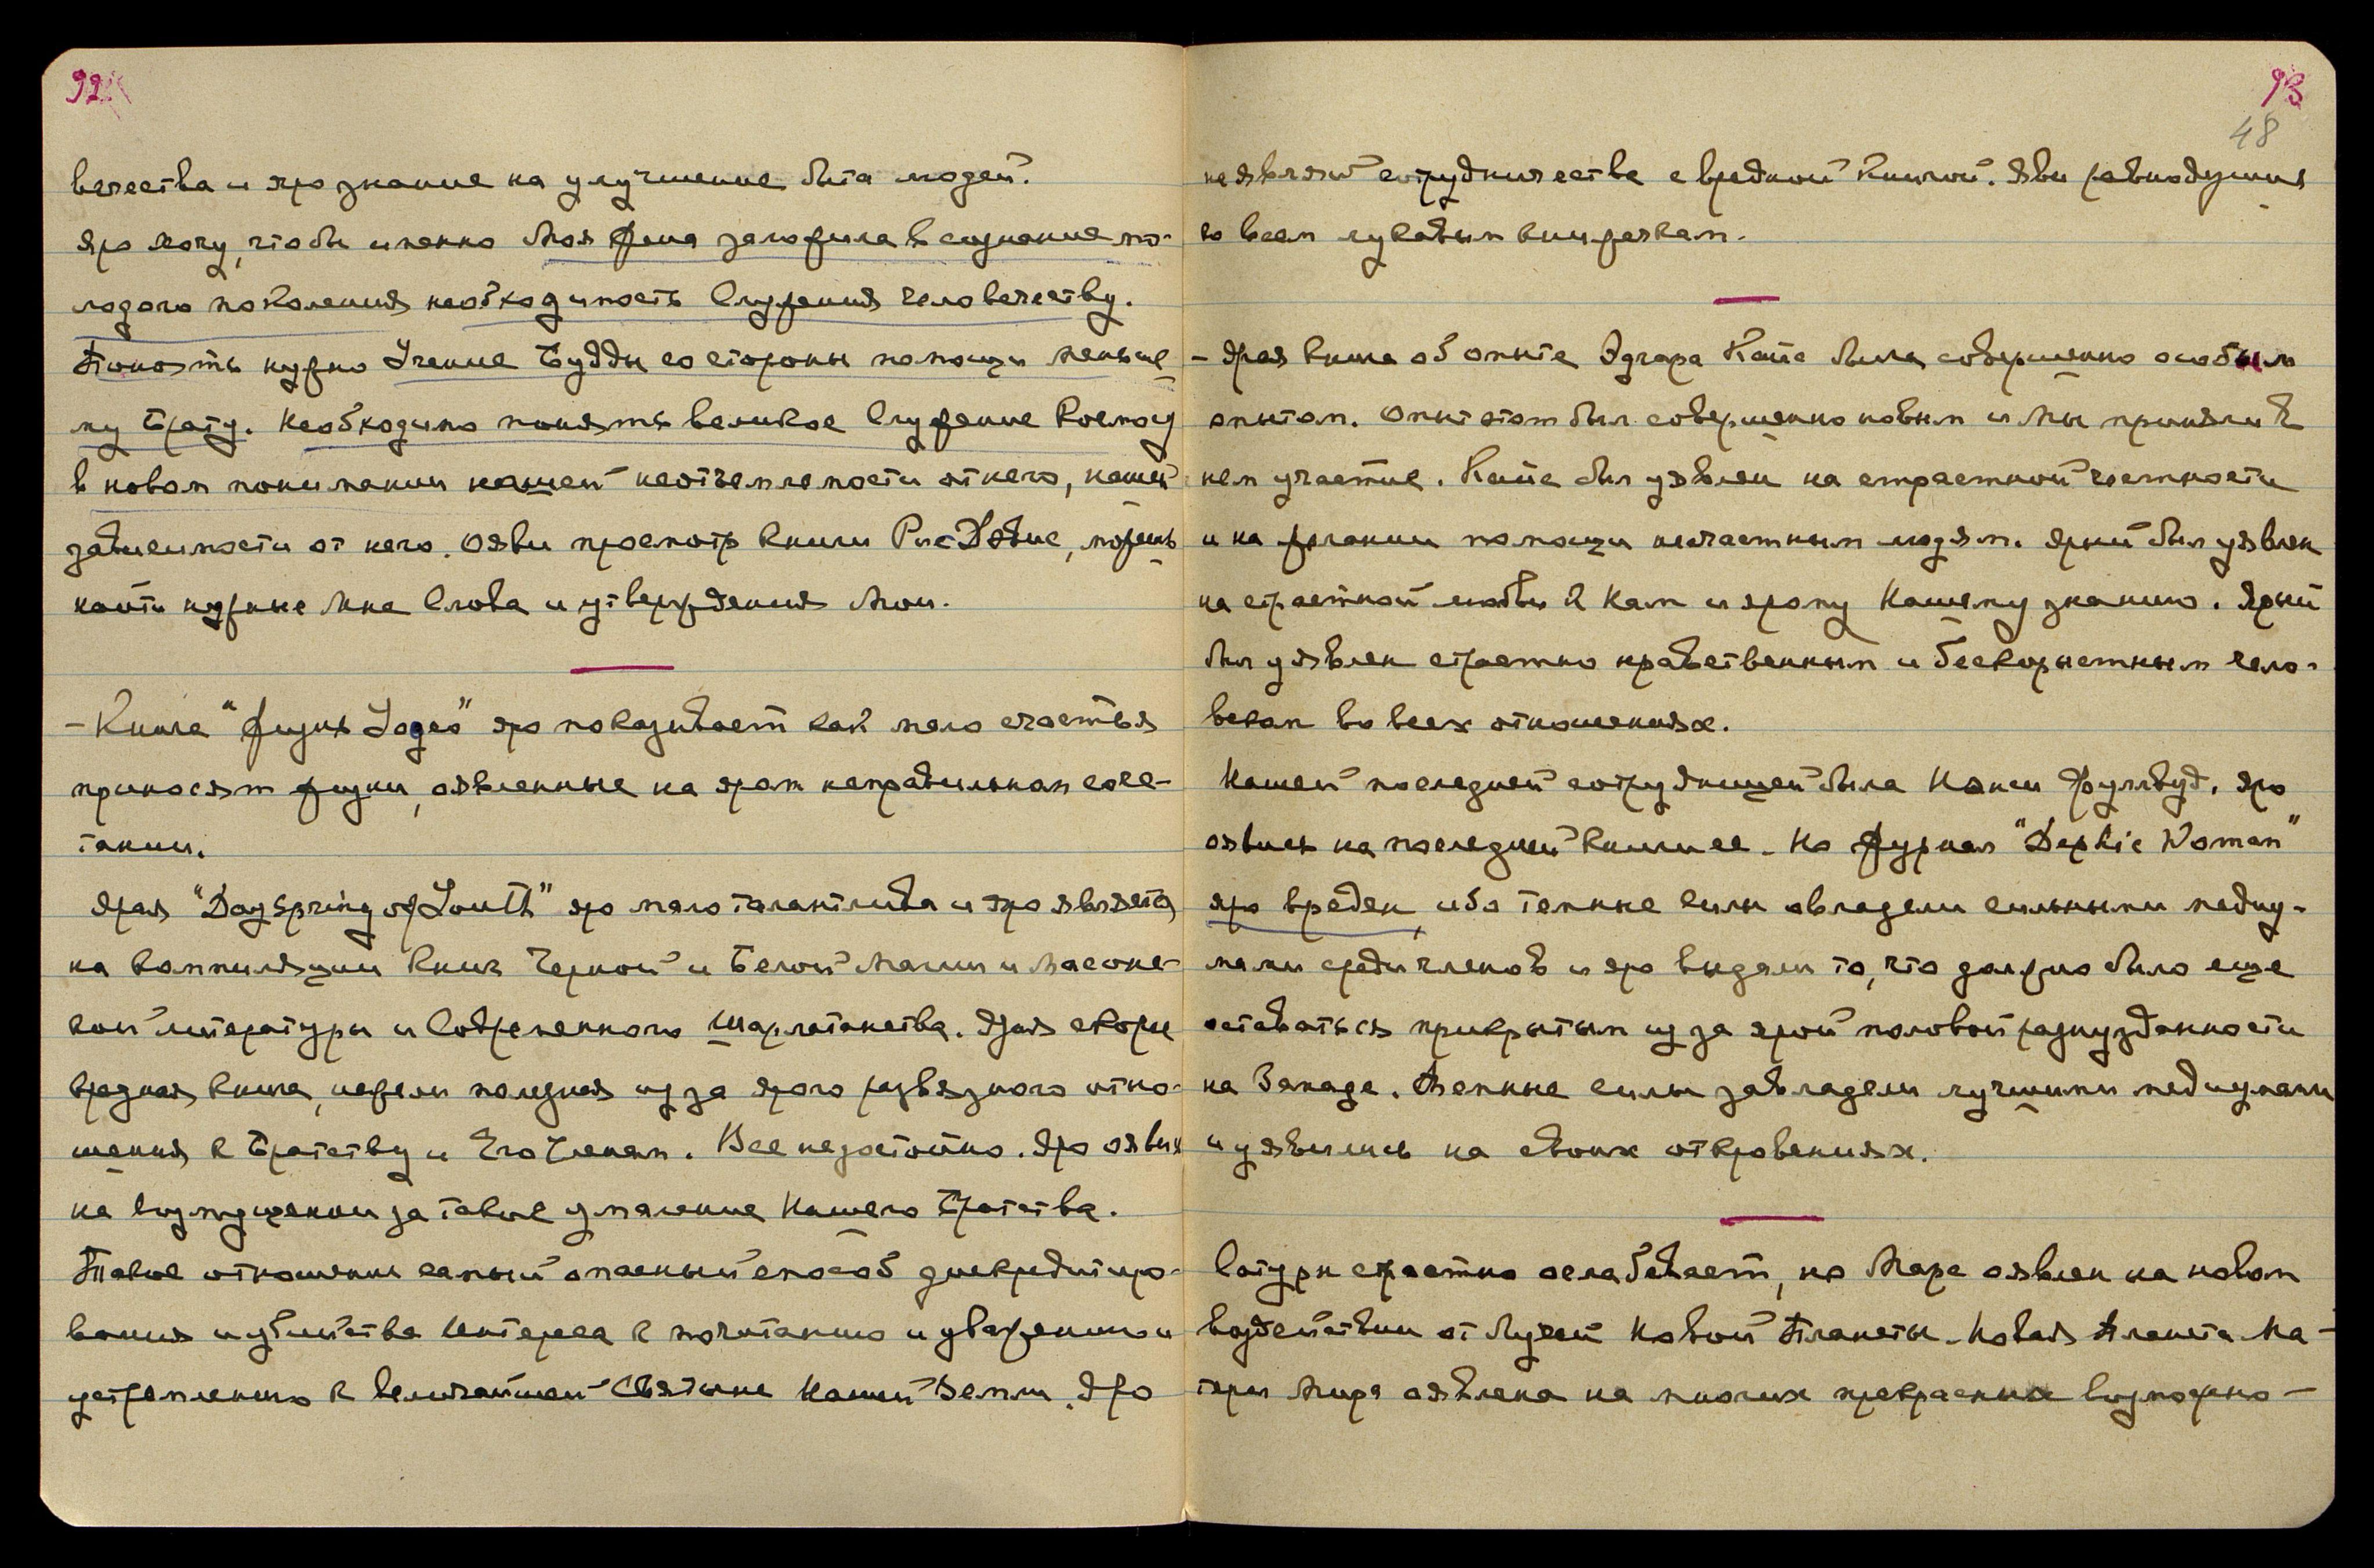 92
вечества и яро знание на улучшение быта людей.
Яро хочу, чтобы именно Моя Жена заложила в сознание мо-
лодого поколения необходимость Служения человечеству.
Понять нужно Учение Будды со стороны помощи меньше-
му Брату. Необходимо понять великое Служение Космосу
в новом понимании нашей неотъемлемости от него, нашей
зависимости от него. Ояви просмотр книги Рис Дэвис, можешь
найти нужные Мне Слова и утверждения Мои.
- Книга "Жизнь Logeo" яро показывает как мало счастья
приносят жизни, оявленные на яром неправильном соче-
тании.
Ярая "Dayspring of Youth" яро мало талантлива и яро является
на компиляции книг Черной и Белой Магии и масонс-
кой литературы и Современного шарлатанства. Ярая скорее
вредная книга, нежели полезная из за ярого развязного отно-
шения к Братству и Его Членам. Все недостойно. Яро оявись
на возмущении за такое умаление Нашего Братства.
Такое отношение самый опасный способ дискредитиро-
вания и убийства Интереса к почитанию и уважению и
устремлению к величайшей Святыне Нашей Земли. Яро
93
48
не являй сотрудничества с вредной Книгой. Яви равнодушия
ко всем лукавым книжечкам.
- Ярая книга об опыте Эдгара Кэйса была совершенно особым
опытом. Опыт этот был совершенно новым и Мы приняли в
нем участие. Кэйс был уявлен на страстной честности
и на желании помощи несчастным людям. Ярый был уявлен
на страстной любви к Нам и ярому Нашему знанию. Ярый
был уявлен страстно нравственным и бескорыстным чело-
веком во всех отношениях.
Нашей последней сотрудницей была Нэнси Фуллвуд. Яро
оявись на последней книге ее. Но журнал "Delphic Woman"
яро вреден, ибо темные силы овладели сильными медиу-
мами среди членов и яро выдали то, что должно было еще
оставаться прикрытым из за ярой половой разнузданности
на Западе. Темные силы завладели лучшими медиумами
и уявились на своих откровениях.
Сатурн страстно ослабевает, но Марс оявлен на новом
воздействии от Лучей Новой Планеты. Новая Планета Ма-
тери Мира оявлена на многих прекрасных возможно-